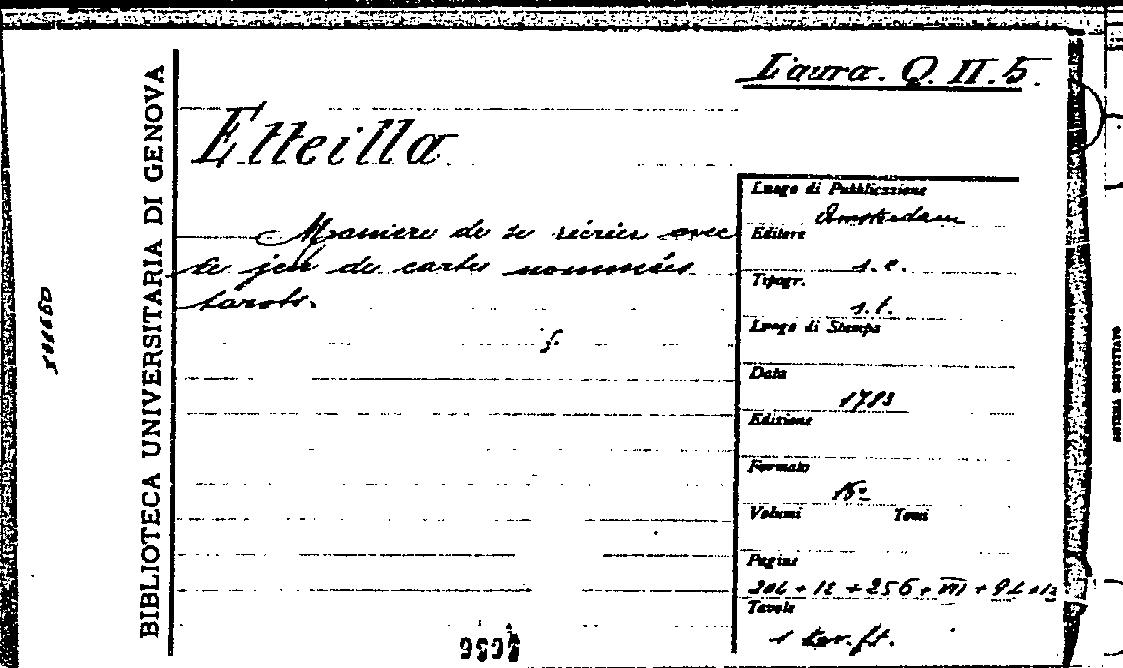 Laura. Q. II. 5.
BIBLIOTECA UNIVERSITARIA DI GENOVA
Etteilla
Maniere de se récréer avec
le jeu de cartes nommées
tarots.
Luogo di Pubblicazione
Amsterdam
Editore
s. e.
Tipogr.
s. t.
Luogo di Stampa
Data
1783
Edizione
Formato
Volumi Tomi
Pagine
+ 12 + 256 + III +
Tavole
1 tav. ft.